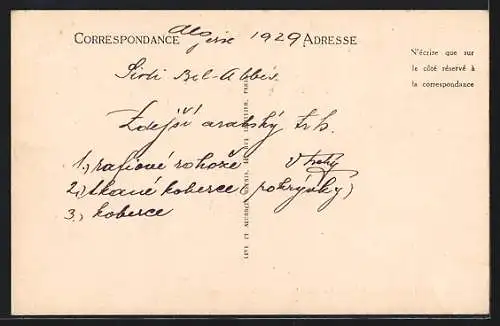 CORRESPONDANCE Algerie 1929 ADRESSE
N'écrire que sur
le côté réservé à
la correspondance
Sidi Bel-Abbés
Zdejší arabský trh.
1., rafiové rohože
2., tkané koberce (pokrývky)
3., koberce